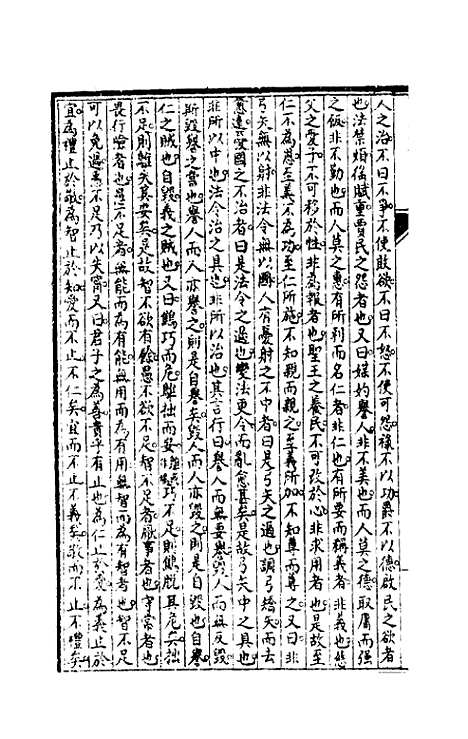 人之治不曰不爭不使敢欲不曰不怨不使可怨祿不以功爵不以德啟民之欲者
也法禁煩徭賦重賈民之怨者也又曰媒妁譽人非不美也而人莫之德取庸而强
之飯非不勤也而人莫之惠有所利而名仁者非仁也有所要而稱義者非義也慈
父之愛子不可移於性非為報者也聖王之養民不可改於心非求用者也是故至
仁不為慈至義不為功至仁所施不知親而親之至義所加不知尊而尊之又曰非
弓矢無以射非法令無以國人有憂射之不中者曰是弓矢之過也調弓矯矢而去
愈遠憂國之不治者曰是法令之過也變法更令而亂愈甚矣是故弓矢中之具也
非所以中也法令治之具也非所以治也其言行曰譽人而無要譽毀人而無反毀
斯毀譽之當也譽人而人亦譽之則是自譽矣毀人而人亦毀之則是自毀也自譽
仁之賊也自毀義之賊也又曰鷦巧而危鵻拙而安鵻巧不足則鷦脫其危矣拙
不足則鵻失其安矣是故智不欲有餘愚不欲不足智不足者廢事者也守常者也
畏行險者也愚不足者無能而為有能無用而為有用無智而為有智者也智不足
可以免過愚不足乃以失甯又曰君子之為善貴乎有止也為仁止於愛為義止於
宜為禮止於敬為智止於知愛而不止不仁矣宜而不止不義矣敬而不止不禮矣